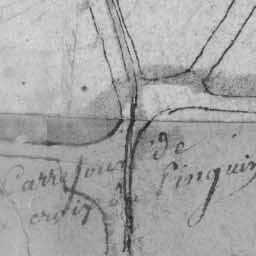 Carrefour de
croix de Pinguin